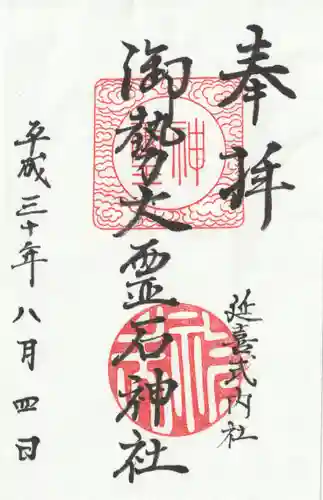 奉拝
延喜式内社
御勢大霊石神社
平成三十年八月四日